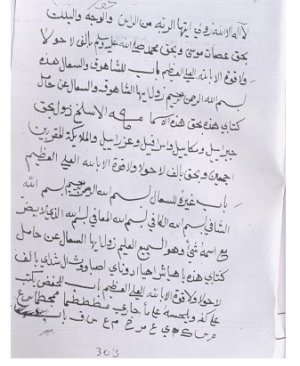 لا اله الا الله زولي ايتها الريه من الراس والوجه والبدن
بحق عصات موسى وبحق محمد صلى الله عليه وسلم بالف لا حولا
ولا قوة الا بالله العلي العظيم باب للشاهوق والسعال هذه
بسم الله الرحمن الرحيم زولي ايها الشاهوق والسعال عن حامل
كتابي هذه بحق هذه الاسما
جبرايل وميكاييل واسرافيل وعزراييل والملايكة المقربين
اجمعين وبحق بالف لا حولا ولا قوة الا بالله العلي العظيم
باب غيره للسعال بسم الله الرحمن الرحيم بسم الله
الشافي بسم الله الكافي بسم الله المعافي بسم الله الذي لا يضر
مع اسمه شئ وهو السميع العليم زول ايها السعال عن حامل
كتابي هذه
لا حولا ولا قوة الا بالله العلي العظيم باب
303